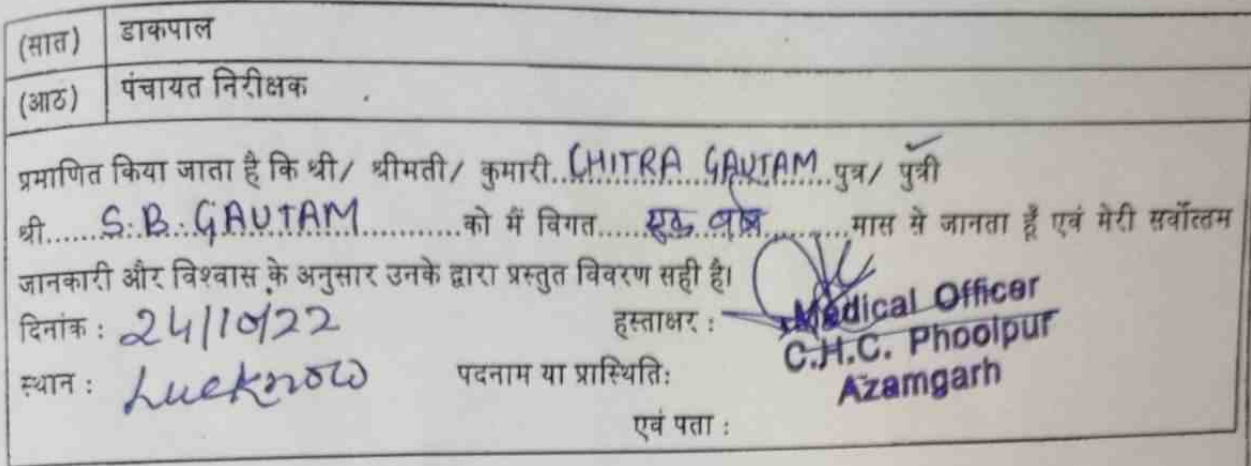 (सात) डाकपाल
(आठ) पंचायत निरीक्षक
प्रमाणित किया जाता है कि श्री/ श्रीमती/ कुमारी..CHITRA GAUTAM..पुत्र/ पुत्री
श्री......S.B.GAUTAM............को मैं विगत...... ..........मास से जानता हूँ एवं मेरी सर्वोत्तम
जानकारी और विश्वास के अनुसार उनके द्वारा प्रस्तुत विवरण सही है।
दिनांक : 24/10/22 हस्ताक्षर : Medical Officer
C.H.C. Phoolpur
स्थान : Lucknow पदनाम या प्रास्थितिः Azamgarh
एवं पता :